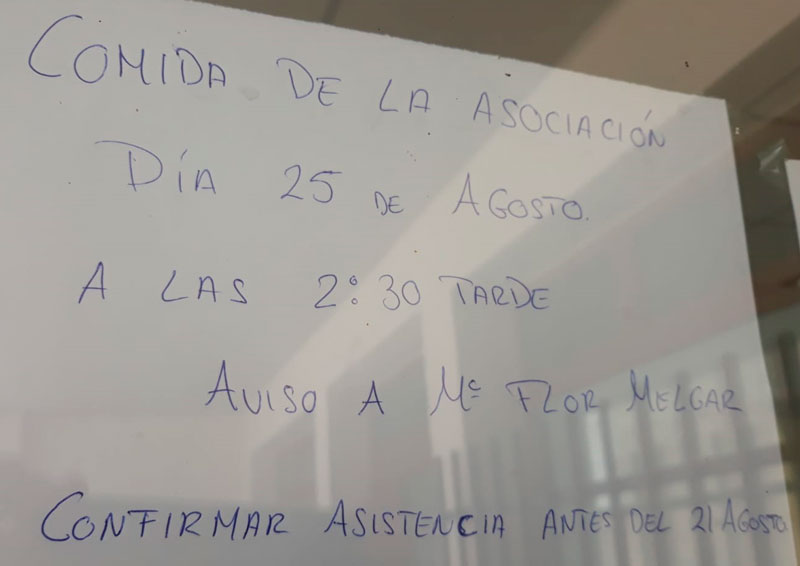 COMIDA DE LA ASOCIACIÓN
DÍA 25 DE AGOSTO.
A LAS 2:30 TARDE
AVISO A Mª FLOR MELGAR
CONFIRMAR ASISTENCIA ANTES DEL 21 AGOSTO